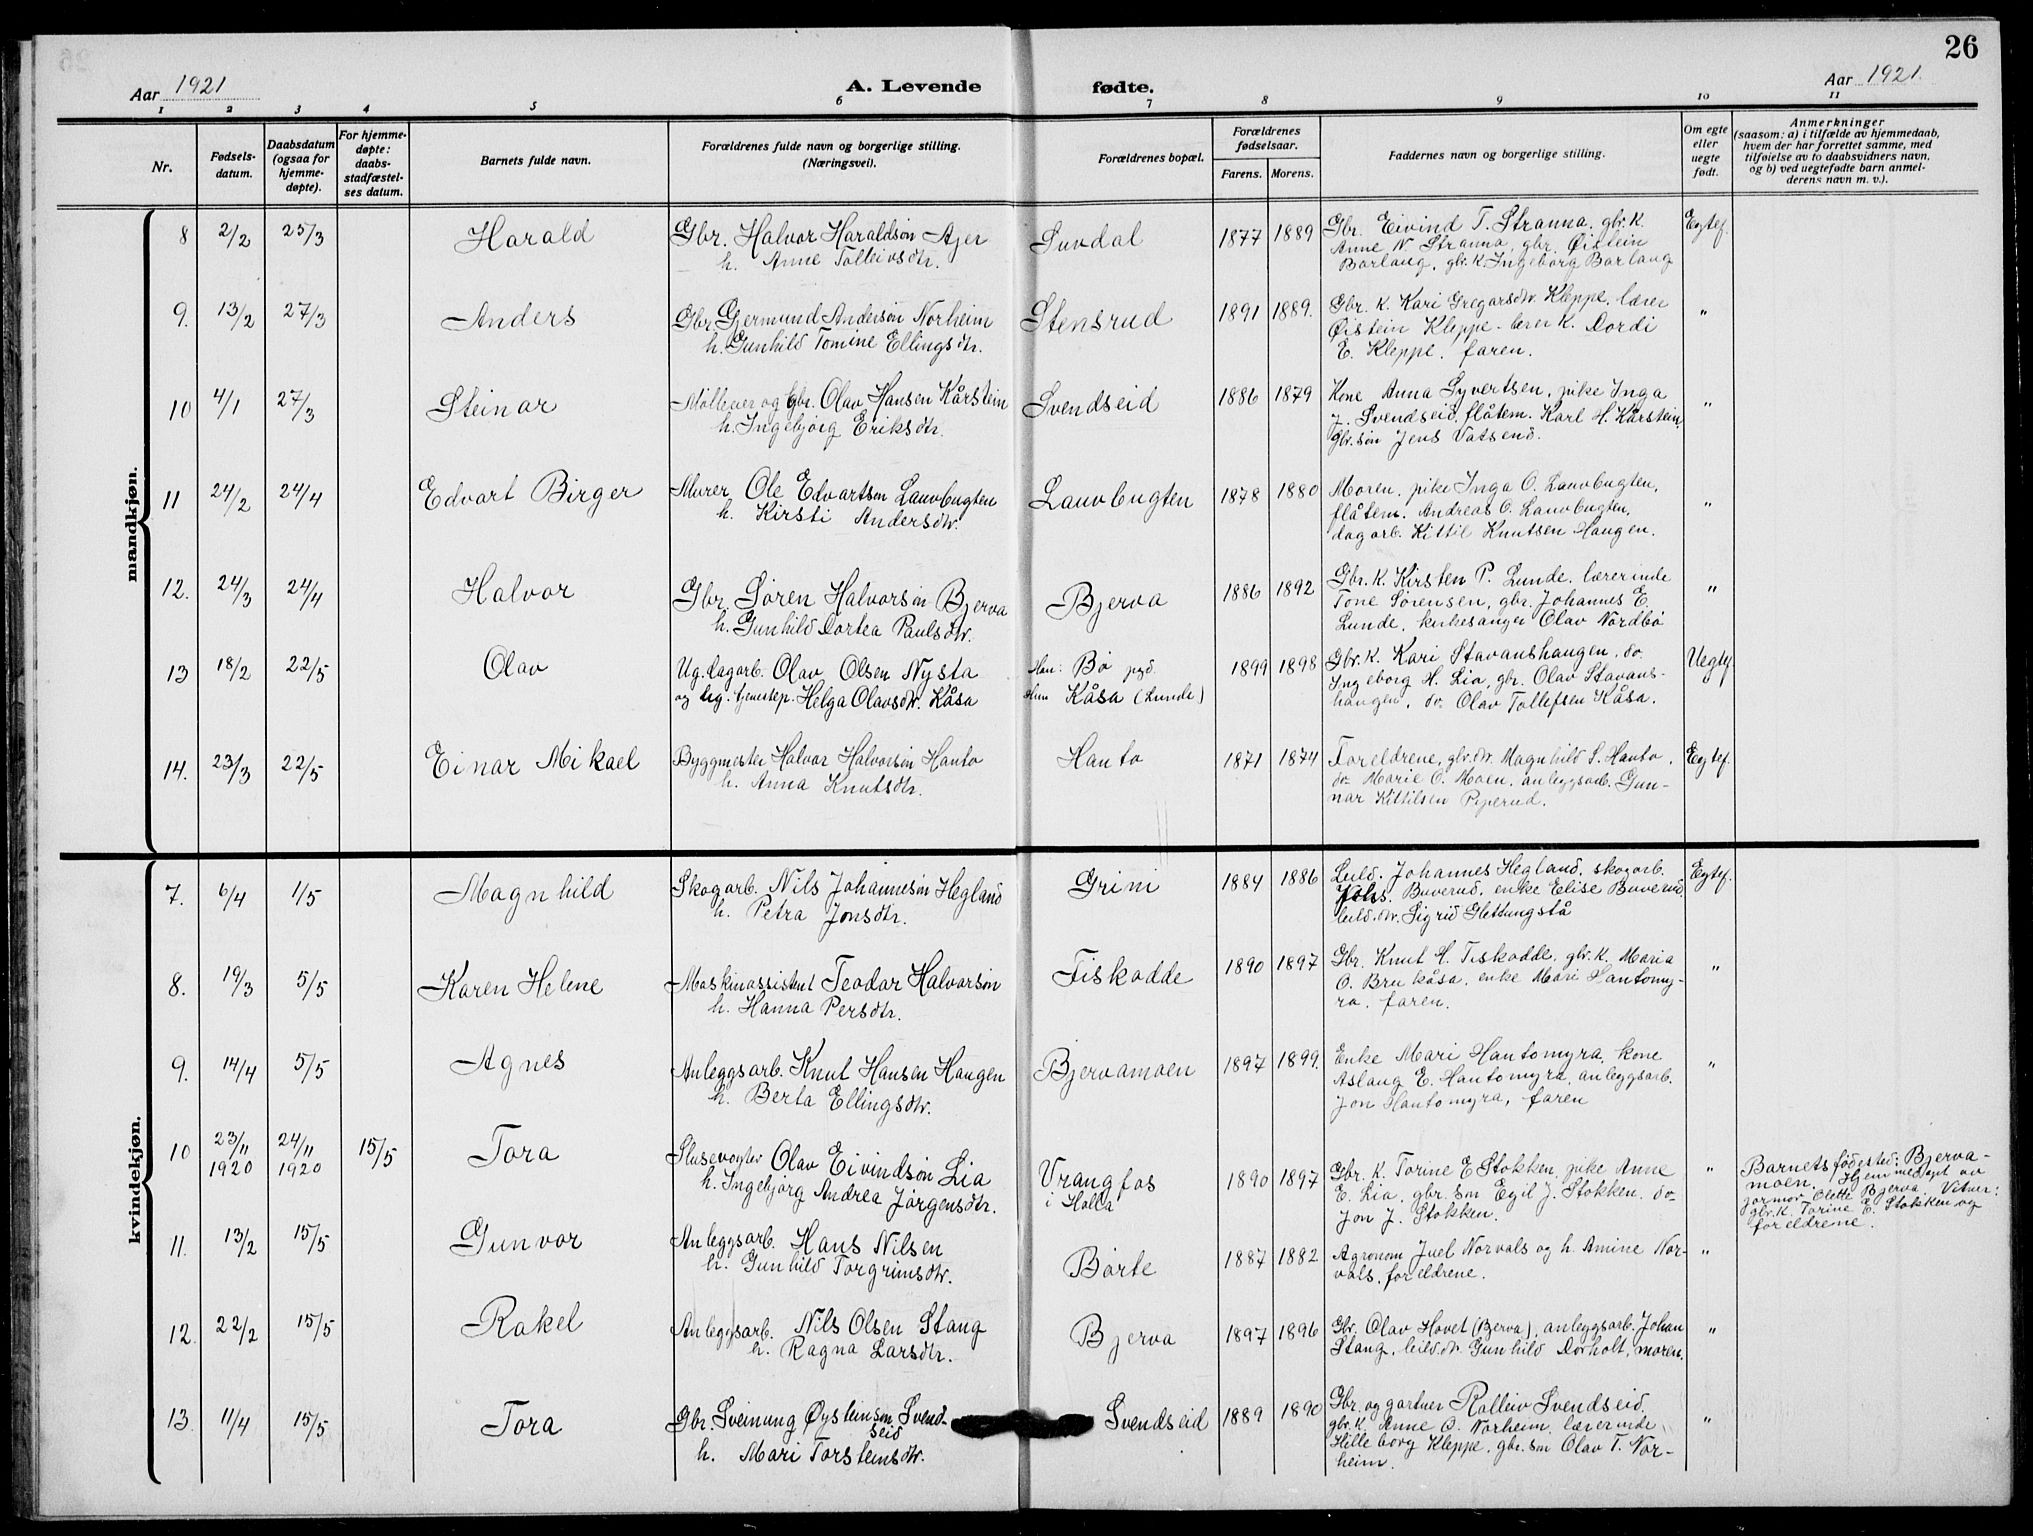 26
Aar 1921
A. Levende fødte.
Aar 1921
1 2 3 4 5 6 7 8 9 10 11
Nr.
Fødsels-
datum.
Daabsdatum
(ogsaa for
hjemme-
døpte).
For hjemme-
døpte:
daabs-
stadfæstel-
ses datum.
Barnets fulde navn.
Forældrenes fulde navn og borgerlige stilling.
(Næringsvei).
Forældrenes bopæl.
Forældrenes
fødselsaar.
Farens. Morens.
Faddernes navn og borgerlige stilling.
Om egte
eller
uegte
født.
Anmerkninger
(saasom: a) i tilfælde av hjemmedaab,
hvem der har forrettet samme, med
tilføielse av to daabsvidners navn,
og b) ved uegtefødte barn anmel-
derens navn m. v.).
mandkjøn.
8 2/2 25/3 Harald Gbr. Halvor Haraldson Ajer Suvdal 1877 1889 Gbr. Eivind T. Stranna, gbr. k. Egtef.
h. Anne Tolleivsdtr. Anne N. Stranna, gbr. Øistein
Barlaug, gbr. k. Ingeborg Barlaug
9. 13/2 27/3 Anders Gbr. Gjermund Anderson Norheim Stensrud 1891 1889. Gbr. k. Kari Gregarsdtr. Kleppe, lærer "
h. Gunhild Tomine Ellingsdtr. Øistein Kleppe - lærer k. Dordi
E. Kleppe, faren.
10 4/1 27/3 Steinar Mølleeier og Gbr. Olav Hansen Kårstein Svendseid 1886 1879 Kone Anna Syvertsen, pike Inga "
h. Ingebjørg Eriksdtr. J. Svendseid, flåtem. Karl H. Kårstein,
Gbr. søn Jens Vatsend.
11 24/2 24/4 Edvart Birger Murer Ole Edvartsen Lauvbugten Lauvbugten 1878 1880 Moren, pike Inga O. Lauvbugten, "
h. Kirsti Andersdtr. flåtem. Andreas O. Lauvbugten,
dagarb. Kittil Knutsen Haugen.
12. 24/3 24/4 Halvor Gbr. Søren Halvorson Bjerva Bjerva 1886 1892 Gbr. k. Kirsten P. Lunde, lærerinde "
h. Gunhild Dortea Paulsdtr. Tone Sørensen, gbr. Johannes E.
Lunde, kirkesanger Olav Nordbø
13 18/2 22/5 Olav Ug. dagarb. Olav Olsen Nysta Han: Bø pgd. 1899 1898 Gbr. k. Kari Stavanshaugen, do. Uegtef.
og ug. tjenestep. Helga Olavsdtr. Kåsa Hun Kåsa (Lunde) Ingeborg H. Lia, gbr. Olav Stavans-
haugen, do. Olav Tollefsen Kåsa.
14. 23/3 22/5 Einar Mikael Byggmester Halvor Halvorson Hanto Hanto 1871 1874 Foreldrene, gbr. dtr. Magnhild S. Hanto, Egtef.
h. Anna Knutsdtr. do. Marie O. Moen, anleggsarb. Gun-
nar Kittilsen Piperud.
kvindekjøn.
7. 6/4 1/5 Magnhild Skogarb. Nils Johanneson Hegland Grini 1884 1886 Leild. Johannes Hegland, skogarb. Egtef.
h. Petra Jonsdtr. Johs. Buverud, enke Elise Buverud,
leild. dtr. Sigrid Glettungstå
8. 19/3 5/5 Karen Helene Maskinassistent Teodor Halvorson Fiskodde 1890 1897 Gbr. Knut H. Fiskodde, gbr. k. Maria "
h. Hanna Persdtr. O. Brukåsa, enke Mari Hantomy-
ra, faren.
9. 14/4 5/5 Agnes Anleggsarb. Knut Hansen Haugen Bjervamoen 1897 1899. Enke Mari Hantomyra, kone "
h. Berta Ellingsdtr. Aslaug E. Hantomyra, anleggsarb.
Jon Hantomyra, faren
10 23/11 1920 24/11 1920 15/5 Tora Slusevogter Olav Eivindson Lia Vrangfos 1890 1897 Gbr. k. Torine E. Stokken, pike Anne " Barnets fødested: Bjerva-
h. Ingebjørg Andrea Jørgensdtr. i Holla E. Lia, gbr. søn Egil J. Stokken, do. moen. Hjemmedøpt av
Jon J. Stokken. jormor Olette Bjerva. Vitner:
gbr. k. Torine E. Stokken og
foreldrene.
11. 13/2 15/5 Gunvor Anleggsarb. Hans Nilsen Børte 1887 1882 Agronom Juel Norvals og h. Amine Nor- "
h. Gunhild Torgrimsdtr. vals, foreldrene.
12. 22/2 15/5 Rakel Anleggsarb. Nils Olsen Stang Bjerva 1897 1896 Gbr. Olav Hovet (Bjerva), anleggsarb. Johan "
h. Ragna Larsdtr. Stang, leild. dtr. Gunhild Dorholt, moren.
13. 11/4 15/5 Tora Gbr. Sveinung Øysteinsen Svend- Svendseid 1889 1890 Gbr. og gartner Rolleiv Svendseid, "
seid gbr. k. Anne O. Norheim, lærerinde
h. Mari Torsteinsdtr. Hilleborg Kleppe, gbr. søn Olav T. Nor-
heim.